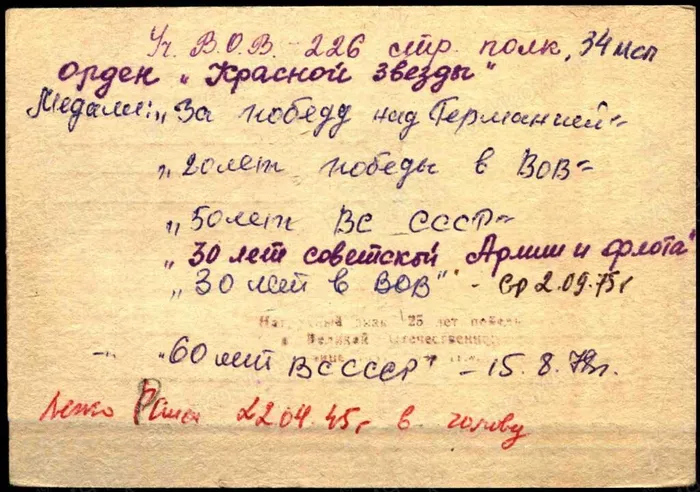 Уч. В.О.В. - 226 стр. полк, 34 мсп
Орден „Красной звезды"
Медали: „За победу над Германией"
„20 лет победы в ВОВ"
„50 лет ВС СССР"
„30 лет советской Армии и флота"
„30 лет в ВОВ" - ср 2.09.75г
Нагрудный знак "25 лет победы
в Великой Отечественной
- „ „60 лет ВС СССР" - 15.8.79г.
Легко Ранен 22.04.45г в голову